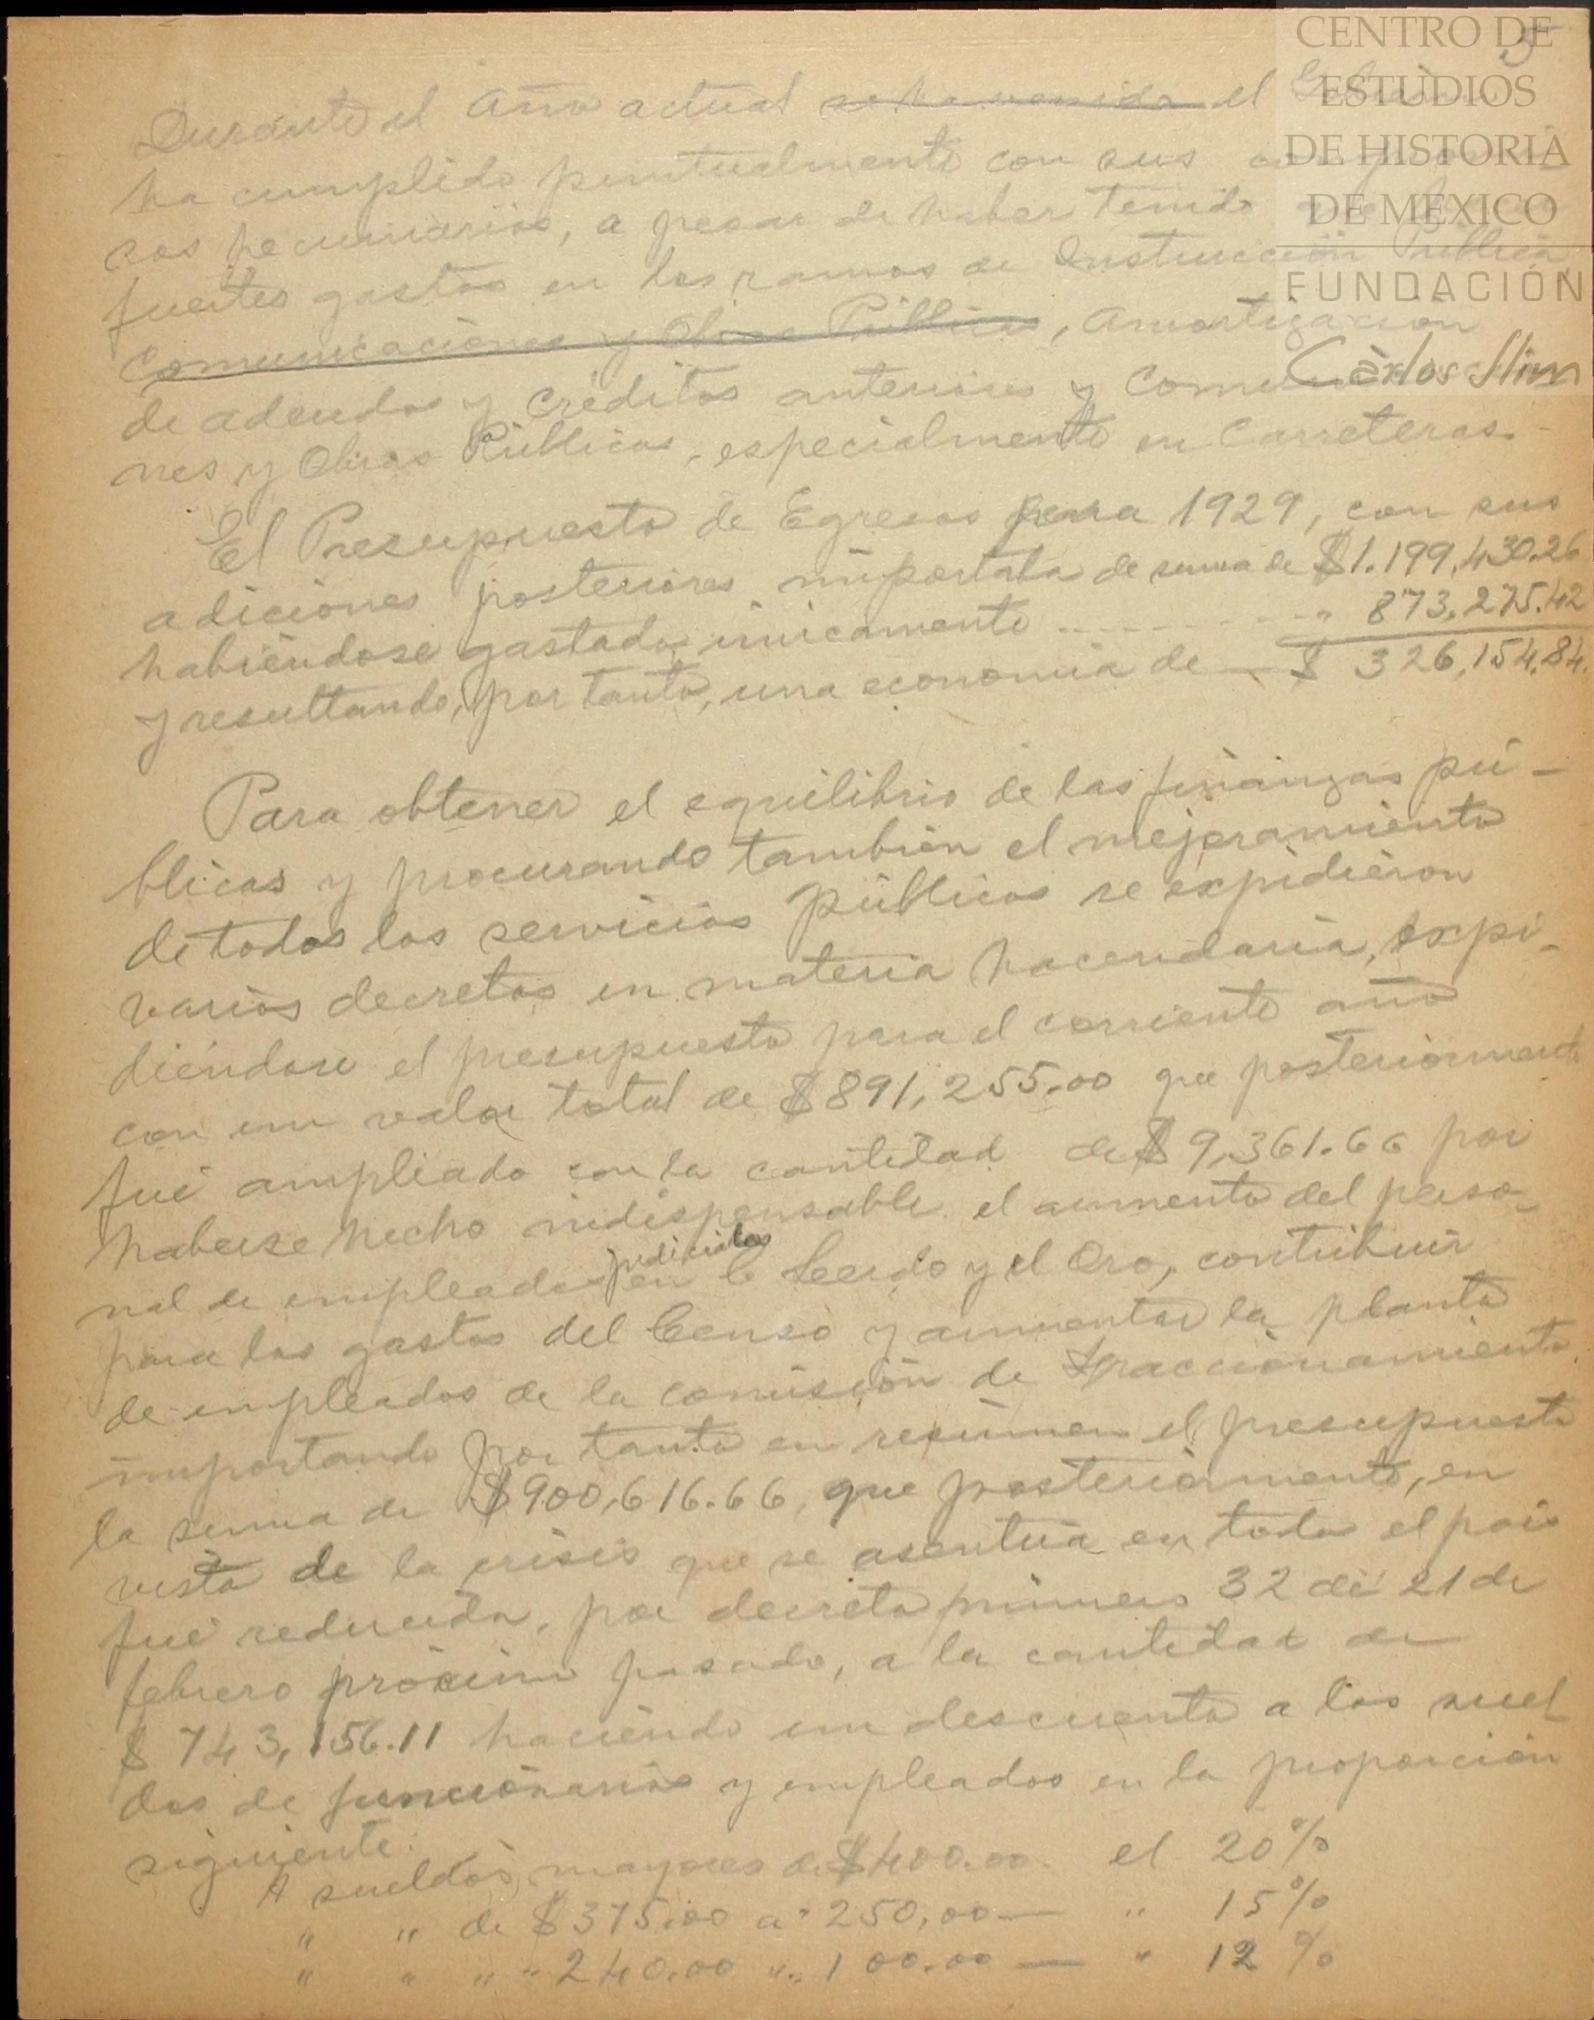 CENTRO DE
ESTUDIOS
DE HISTORIA
DE MEXICO
FUNDACIÓN
Carlos Slim
5
Durante el año actual se ha venido el
ha cumplido puntualmente con sus
cos pecuniarios, a pesar de haber tenido
fuertes gastos en los ramos de Instrucción Pública,
Comunicaciones y Obras Públicas, Amortización
de adeudos y créditos anteriores y
nes y Obras Públicas, especialmente en Carreteras.
El Presupuesto de Egresos para 1929, con sus
adiciones posteriores importaba de suma de $1.199,430.26
habiéndose gastado únicamente ---------- " 873,275.42
y resultando, por tanto, una economía de — $ 326,154.84.
Para obtener el equilibrio de las finanzas pú-
blicas y procurando también el mejoramiento
de todos los servicios públicos se expidieron
varios decretos en materia hacendaria, expi-
diéndose el presupuesto para el corriente año
con un valor total de $891,255.00 que posteriormente
fué ampliado con la cantidad de $9,361.66 por
haberse hecho indispensable el aumento del perso-
nal de empleados judiciales en C Lerdo y el Oro, contribuir
para los gastos del Censo y aumentar la planta
de empleados de la comisión de Fraccionamiento
importando por tanto en resúmen el presupuesto
la suma de $900,616.66, que posteriormente, en
vista de la crisis que se asentúa en todo el país
fué reducida, por decreto número 32 de 21 de
febrero próximo pasado, a la cantidad de
$ 743,156.11 haciendo un descuento a los suel
dos de funcionarios y empleados en la proporción
siguiente:
A sueldos mayores de $400.00. el 20%
" " de $375.00 a " 250,00 — " 15%
" " " " 240.00 " " 100.00 — " 12%